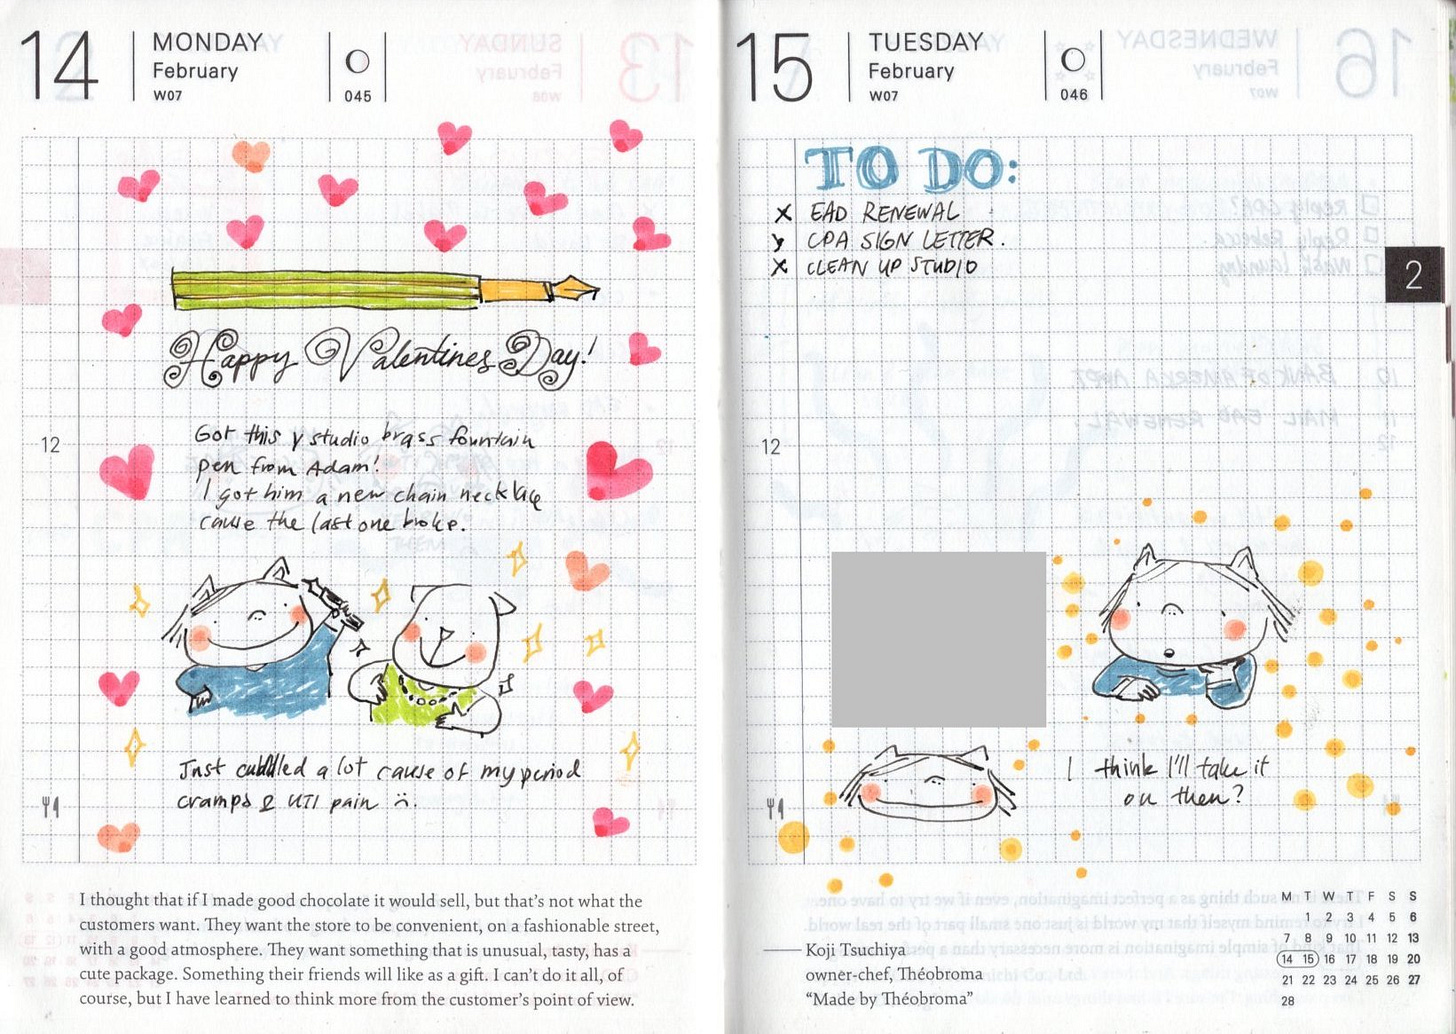 14
MONDAY
February
W07
045
Happy Valentines Day!
12
Got this y studio brass fountain
pen from Adam!
I got him a new chain necklace
cause the last one broke.
Just cuddled a lot cause of my period
cramps & UTI pain
I thought that if I made good chocolate it would sell, but that's not what the
customers want. They want the store to be convenient, on a fashionable street,
with a good atmosphere. They want something that is unusual, tasty, has a
cute package. Something their friends will like as a gift. I can't do it all, of
course, but I have learned to think more from the customer's point of view.
15
TUESDAY
February
W07
046
TO DO:
X EAD RENEWAL
x CPA SIGN LETTER.
X CLEAN UP STUDIO
2
12
I think I'll take it
on then?
Koji Tsuchiya
owner-chef, Théobroma
“Made by Théobroma”
M T W T F S S
1 2 3 4 5 6
7 8 9 10 11 12 13
14 15 16 17 18 19 20
21 22 23 24 25 26 27
28